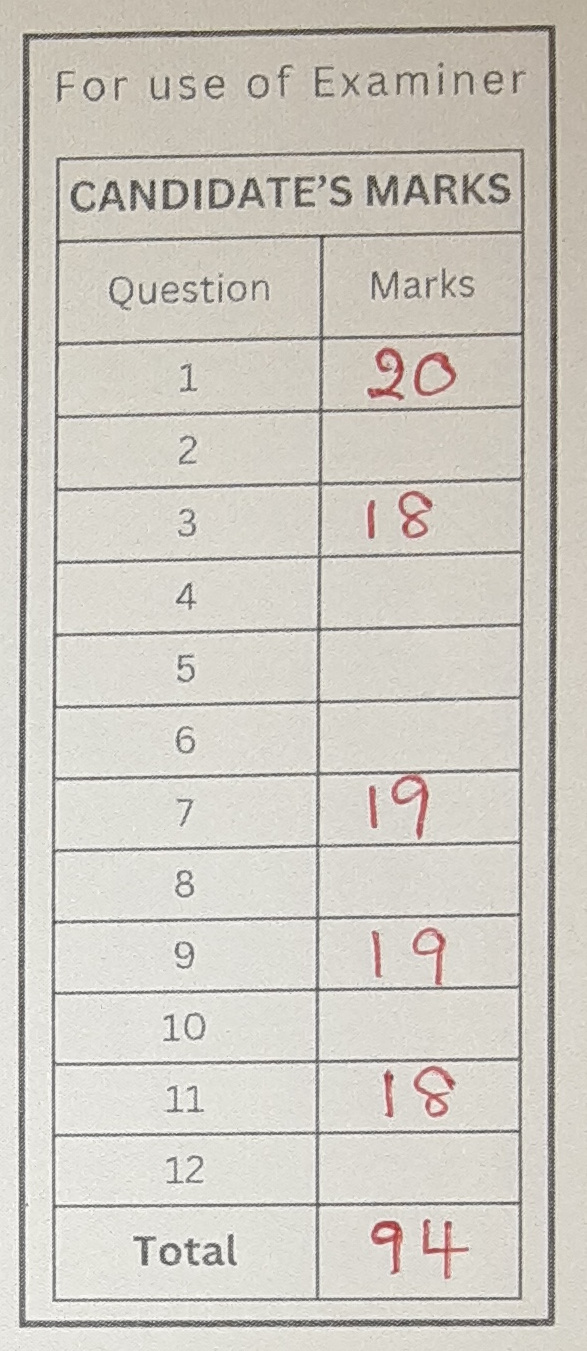 For use of Examiner
CANDIDATE'S MARKS
Question Marks
1 20
2
3 18
4
5
6
7 19
8
9 19
10
11 18
12
Total 94